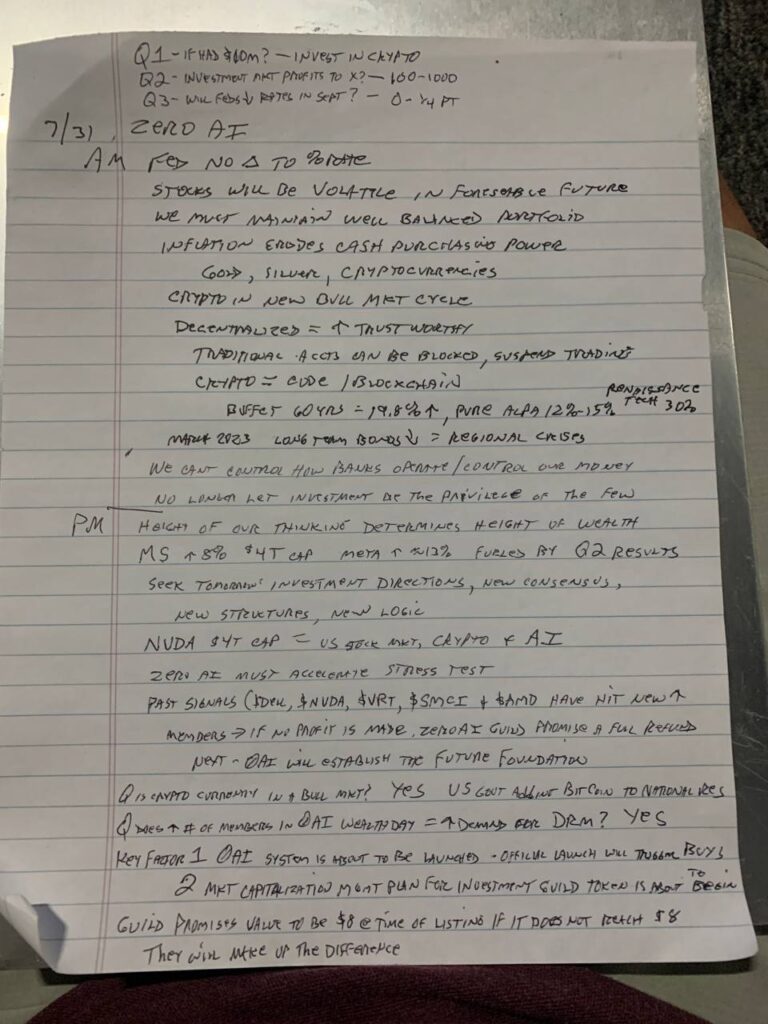 Q1 - IF HAD $10M? - INVEST IN CRYPTO
Q2 - INVESTMENT MKT PROFITS TO X? - 100-1000
Q3 - WILL FEDS ↓ RATES IN SEPT? - 0-1/4 PT
7/31, ZERO AI
AM FED NO Δ TO % RATE
STOCKS WILL BE VOLATILE IN FORESEABLE FUTURE
WE MUST MAINTAIN WELL BALANCED PORTFOLIO
INFLATION ERODES CASH PURCHASING POWER
GOLD, SILVER, CRYPTOCURRENCIES
CRYPTO IN NEW BULL MKT CYCLE
DECENTRALIZED = ↑ TRUST WORTHY
TRADITIONAL ACCTS CAN BE BLOCKED, SUSPEND TRADING
CRYPTO = CODE / BLOCKCHAIN
BUFFET 60 YRS = 19.8% ↑, PURE ALPA 12%-15% RENAISSANCE TECH 30%
MARCH 2023 LONG TERM BONDS ↓ = REGIONAL CRISES
WE CANT CONTROL HOW BANKS OPERATE/CONTROL OUR MONEY
NO LONGER LET INVESTMENT BE THE PRIVILEGE OF THE FEW
PM HEIGHT OF OUR THINKING DETERMINES HEIGHT OF WEALTH
MS ↑ 8% $4T CAP META ↑ ≈12% FUELED BY Q2 RESULTS
SEEK TOMORROWS INVESTMENT DIRECTIONS, NEW CONSENSUS,
NEW STRUCTURES, NEW LOGIC
NVDA $4T CAP = US STOCK MKT, CRYPTO & AI
ZERO AI MUST ACCELERATE STRESS TEST
PAST SIGNALS ($DELL, $NVDA, $VRT, $SMCI & $AMD HAVE HIT NEW ↑
MEMBERS → IF NO PROFIT IS MADE, ZERO AI GUILD PROMISE A FULL REFUND
NEXT - 0AI WILL ESTABLISH THE FUTURE FOUNDATION
Q IS CRYPTO CURRENTLY IN A BULL MKT? YES US GOVT ADDING BITCOIN TO NATIONAL RES
Q DOES ↑ # OF MEMBERS IN 0AI WEALTHDAY = ↑ DEMAND FOR DRM? YES
KEY FACTOR 1 0AI SYSTEM IS ABOUT TO BE LAUNCHED - OFFICIAL LAUNCH WILL TRIGGER BUYS
2 MKT CAPITALIZATION MGMT PLAN FOR INVESTMENT GUILD TOKEN IS ABOUT TO BEGIN
GUILD PROMISES VALUE TO BE $8 @ TIME OF LISTING IF IT DOES NOT REACH $8
THEY WILL MAKE UP THE DIFFERENCE